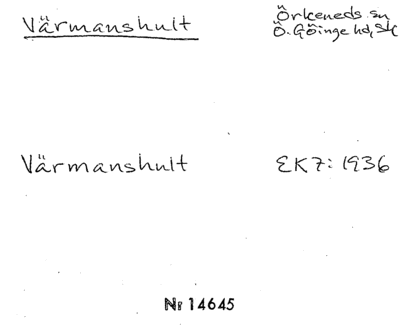 Värmanshult
Örkeneds sn
Ö. Göinge hd, Sk
Värmanshult EK7: 1936
Nr 14645